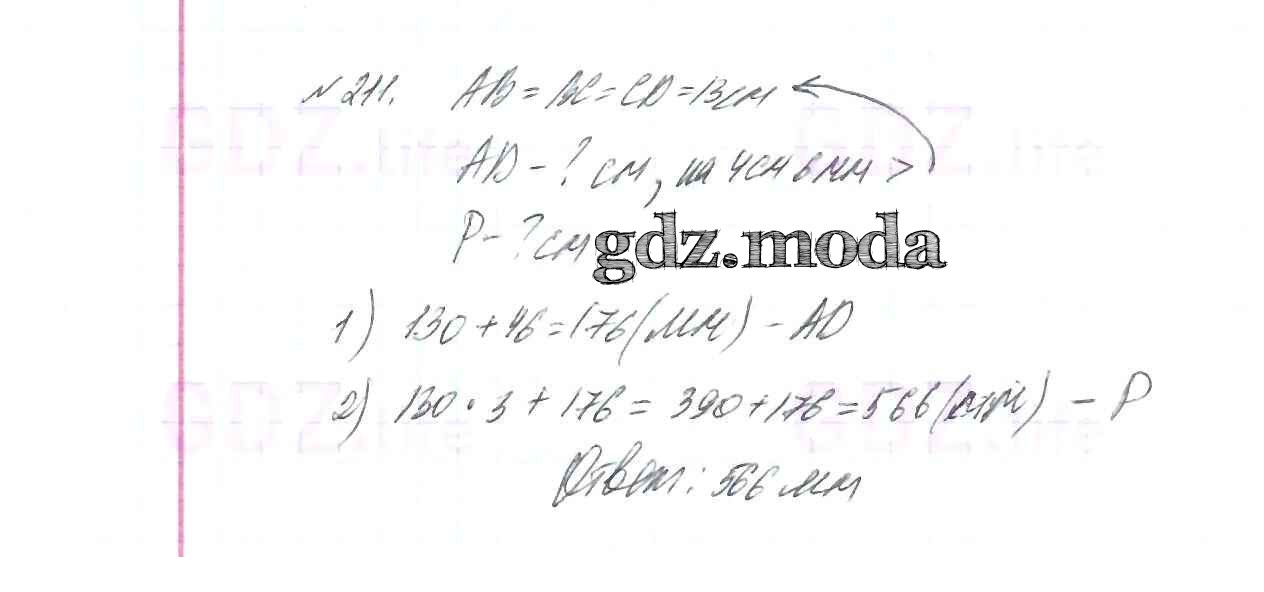 № 211. AB = BC = CD = 13 см
AD - ? см, на 4 см 6 мм >
P - ? см
gdz.moda
1) 130 + 46 = 176 (мм) - AD
2) 130 · 3 + 176 = 390 + 176 = 566 (мм) - P
Ответ: 566 мм
GDZ.life
GDZ.life
GDZ.life
GDZ.life